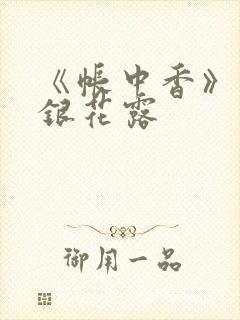 《帳中香》
銀花露
御用一品